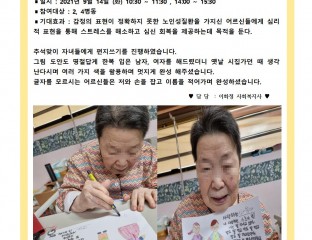 ■ 일시 : 2021년 9월 14일 (화) 10:30 ~ 11:30 , 14:00 ~ 15:30
■ 참여대상 : 2, 4병동
■ 기대효과 : 감정의 표현이 정확하지 못한 노인성질환을 가지신 어르신들에게 심리
적 표현을 통해 스트레스를 해소하고 심신 회복을 제공하는데 목적을 둔다.
추석맞이 자녀들에게 편지쓰기를 진행하였습니다.
그림 도안도 명절답게 한복 입은 남자, 여자를 해드렸더니 옛날 시집가던 때 생각
난다시며 여러 가지 색을 활용하며 멋지게 완성 해주셨습니다.
글자를 모르시는 어르신들은 저와 손을 잡고 이름을 적어가며 완성하셨습니다.
♥ 담 당 : 이화정 사회복지사 ♥